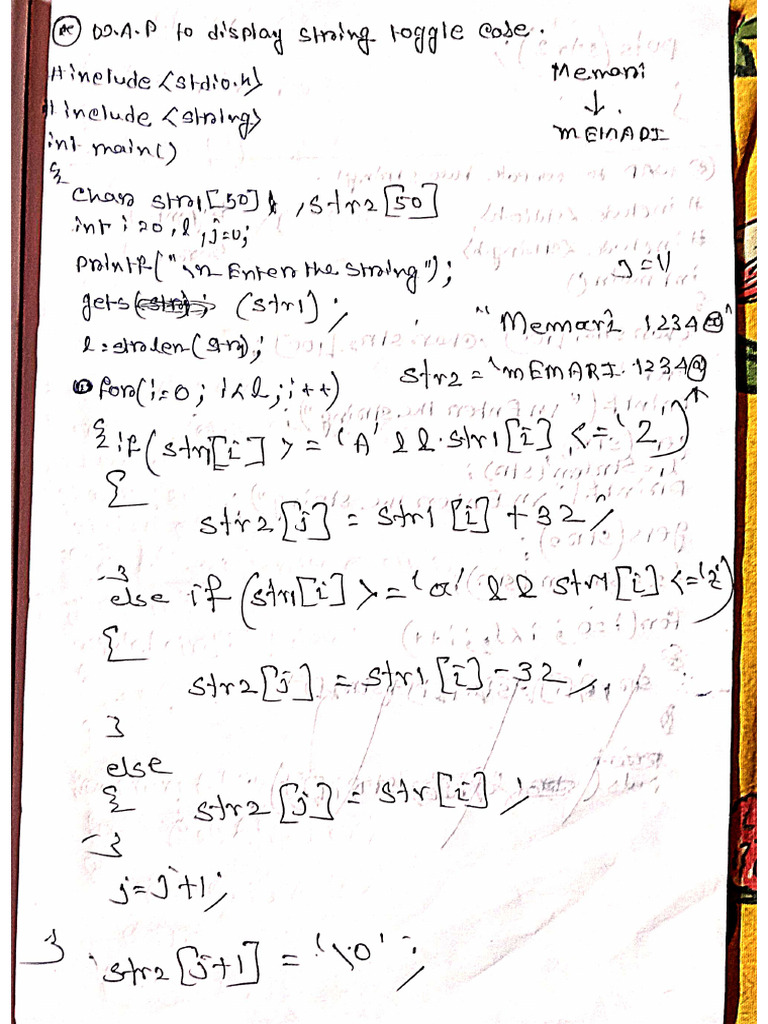 W.A.P to display string toggle case.
#include <stdio.h>
Memari
↓
#include <string>
mEMARI
int main()
{
char str1[50] , str2[50]
int i=0, l, j=0;
printf("\n Enter the string");
gets (str1);
"Memari 1234@"
l = strlen(str1);
str2 = "mEMARI 1234@
for(i=0; i<l; i++)
{ if(str1[i] >= 'A' && str1[i] <= 'Z')
{
str2[j] = str1[i] + 32;
}
else if (str1[i] >= 'a' && str1[i] <= 'z')
{
str2[j] = str1[i] - 32;
}
else
{ str2[j] = str[i];
}
j = j+1;
} str2[j+1] = '\0';